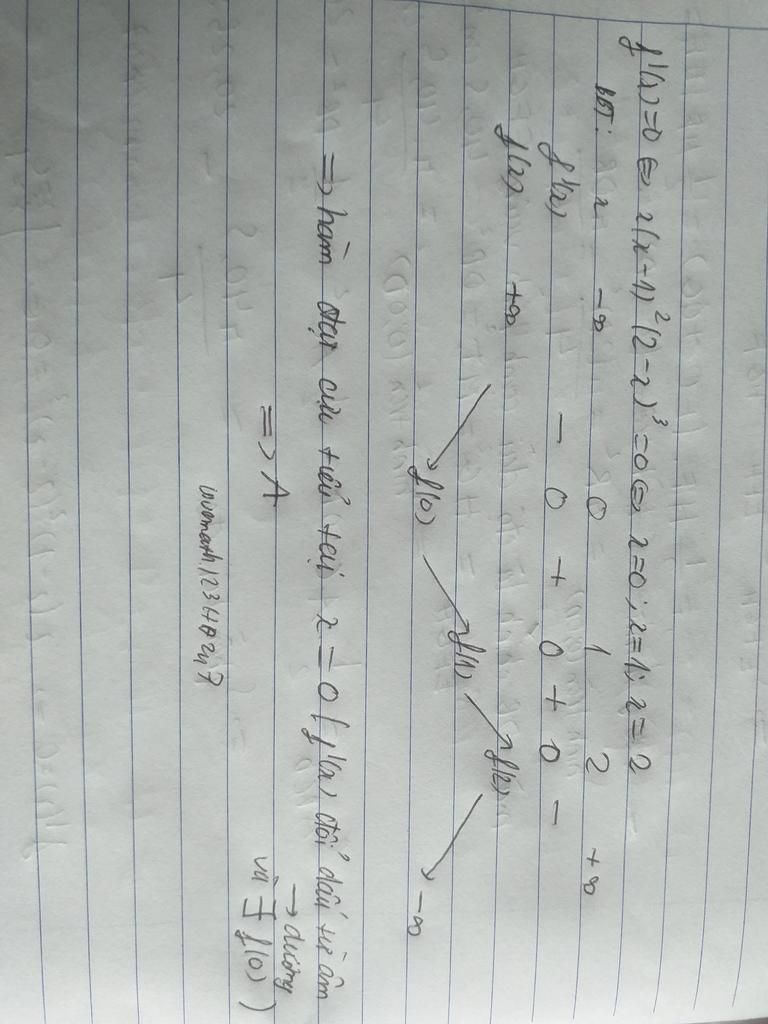 f'(x)=0 ⇔ x(x-1)²(2-x)³=0 ⇔ x=0; x=1; x=2
BBT: x -∞ 0 1 2 +∞
f'(x) - 0 + 0 + 0 -
f(x) +∞ ↘ f(0) ↗ f(1) ↗ f(2) ↘ -∞
=> hàm đạt cực tiểu tại x=0 (f'(x) đổi dấu từ âm
→ dương
và ∃ f(0))
=> A